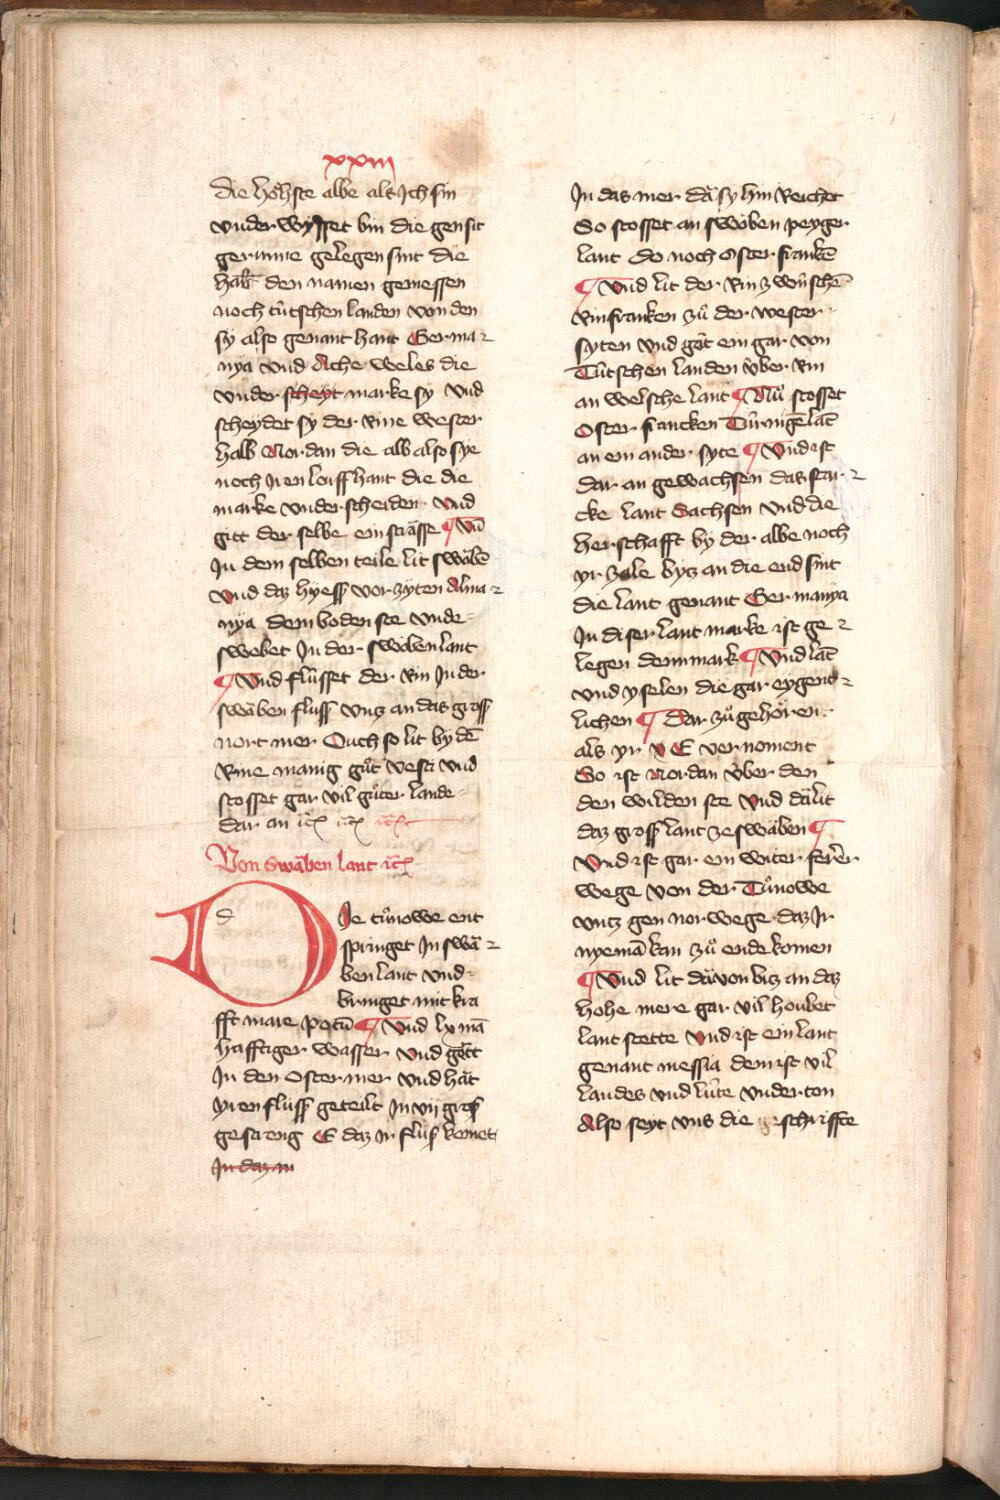 xxiii
die höhste albe als ich sin
vnder wysset bin die gensit
gerinne gelegen sint die
halb den namen gemessen
noch tútschen landen von den
sy also genant hant Germa
nya vnd Ache weles die
vnder scheyt marke sy vnd
scheydet sy der Rine wester
halb Nordan die alb also sye
noch Iren loiff hant die die
marke vnder scheiden vnd
gitt der selbe ein strässe ¶ Vn̄
In dem selben teile lit swäbē
vnd daz hyess vor zyten Alma
nÿa dem boden see vnde
swebet In der swäben lant
¶ Vnd flússet der Rin In der
swäben fluss vntz an das gross
nort mer Ouch so lit by dē
Rine manig gůt vesti vnd
stosset gar vil gůter lande
dar an
Von Swäben lant
d
DIe tůnowe ent
springet In swä
ben lant vnd
bringet mit kra
fft mare pōtū ¶ Vnd lx mā
hafftiger wasser vnd gătt
In den Ostermer vnd hăt
yren fluss geteilt In vij gross
gestreng E daz Ir fluss komet
In daz m
In das mer dă sy hin Reichet
So stosset an swöben peyger
lant do noch Oster frankē
¶ Vnd lit der Rin zwúschē
Rinfranken zů der wester
syten vnd găt ein gar von
Tútschen landen úber Rin
an welsche lant ¶ Nů stosset
Oster francken Túringē lāt
an ein ander syte ¶ Vnd ist
dar an gewachsen das star
cke lant Sachsen vnd die
herschafft by der albe noch
yr zale bytz an die end sint
die lant genant Germanya
In diser lant marke ist ge
legen dennmark ¶ Vnd lāt
vnd yselen die gar eygent
lichen ¶ Dar zů gehören
als yr v E vernoment
So ist Nordan úber den
den wilden see Vnd dă lit
daz gross lant ze swäben ¶
Vnd ist gar ein witer ferer
wege von der Tůnowe
vntz gen norwege daz Ir
nyemā kan zů ende komen
¶ Vnd lit dăvon biz an daz
hohe mere gar vil houbet
lant stette Vnd ist ein lant
genant messia dem ist vil
landes vnd lúte vnderton
Also seyt vns die geschriffte